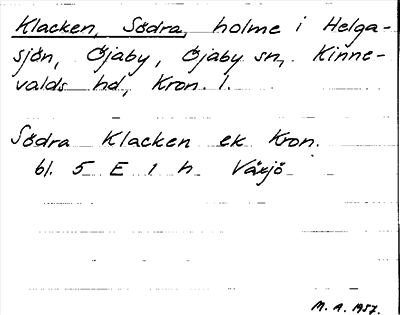 Klacken, Södra, holme i Helga-
sjön, Öjaby, Öjaby sn, Kinne-
valds hd, Kron. l.
Södra Klacken ek Kron.
bl. 5 E 1 h Växjö
M. A. 1957.